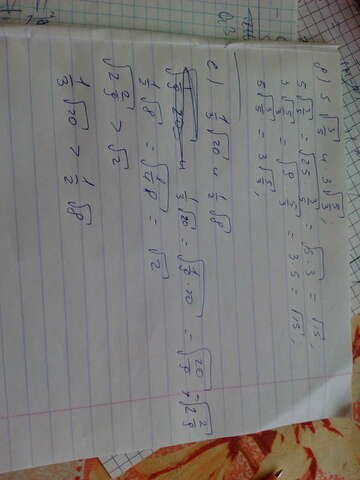 д) 5√(3/5) и 3√(5/3);
5√(3/5) = √(25·3/5) = √(5·3) = √15;
3√(5/3) = √(9·5/3) = 3·5 = √15;
5√(3/5) = 3√(5/3);
е) 1/3 √20 и 1/2 √8
и 1/3 √20 = √(1/9 · 20) = √(20/9) = √(2 2/9)
1/2 √8 = √(1/4 · 8) = √2
√(2 2/9) > √2
1/3 √20 > 1/2 √8